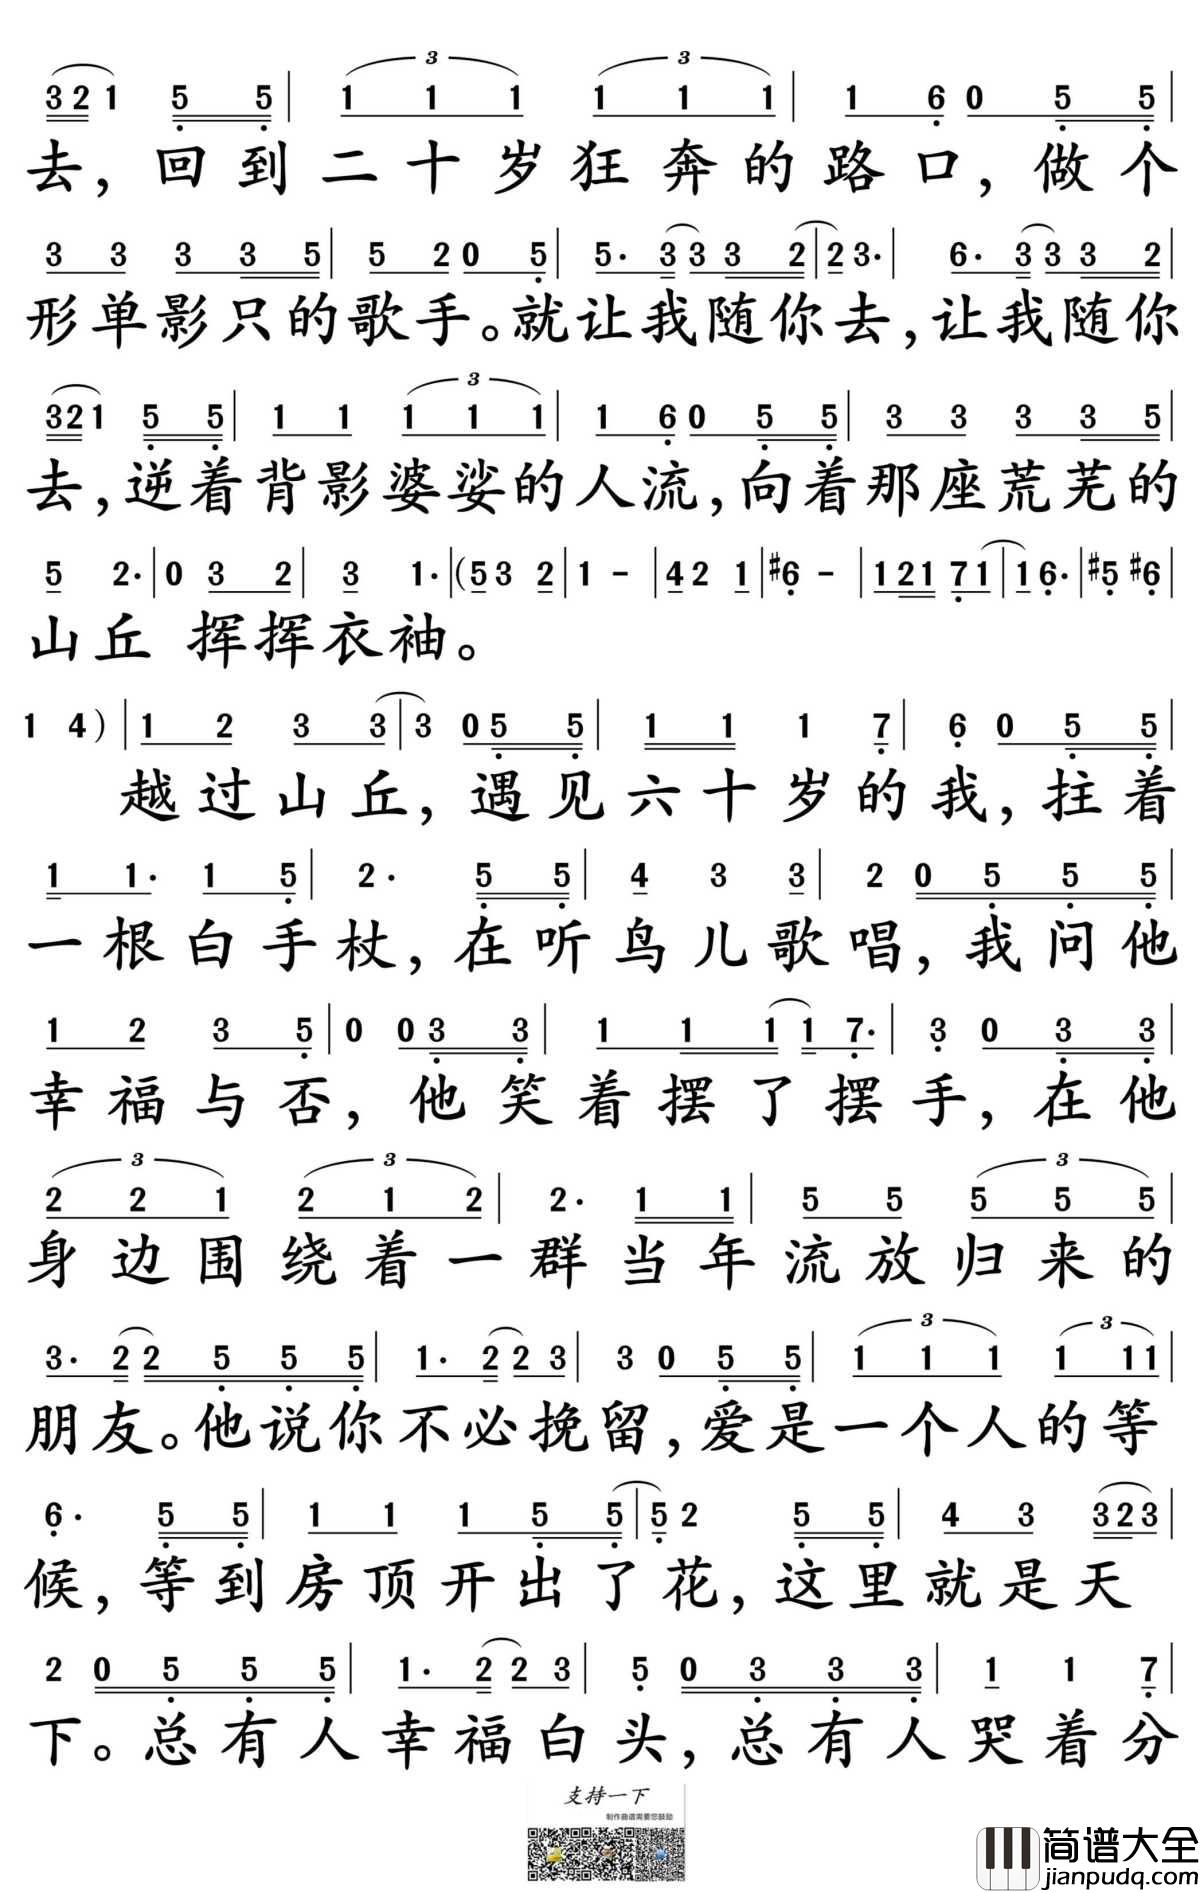 3 2 1 5 5 | 1 1 1 1 1 1 | 1 6 0 5 5 |
3 3
去，回到二十岁狂奔的路口，做个
3 3 3 3 5 | 5 2 0 5 | 5· 3 3 3 2 | 2 3· | 6· 3 3 3 2 |
形单影只的歌手。就让我随你去，让我随你
3
3 2 1 5 5 | 1 1 1 1 1 | 1 6 0 5 5 | 3 3 3 3 5 |
去，逆着背影婆娑的人流，向着那座荒芜的
5 2· | 0 3 2 | 3 1· | (5 3 2 | 1 - | 4 2 1 | #6 - | 1 2 1 7 1 | 1 6· | #5 #6 |
山丘 挥挥衣袖。
1 4) | 1 2 3 3 | 3 0 5 5 | 1 1 1 7 | 6 0 5 5 |
越过山丘，遇见六十岁的我，拄着
1 1· 1 5 | 2· 5 5 | 4 3 3 | 2 0 5 5 5 |
一根白手杖，在听鸟儿歌唱，我问他
1 2 3 5 | 0 0 3 3 | 1 1 1 1 7· | 3 0 3 3 |
幸福与否，他笑着摆了摆手，在他
3 3 3
2 2 1 2 1 2 | 2· 1 1 | 5 5 5 5 5 |
身边围绕着一群当年流放归来的
3 3
3· 2 2 5 5 5 | 1· 2 2 3 | 3 0 5 5 | 1 1 1 1 1 1 |
朋友。他说你不必挽留，爱是一个人的等
6· 5 5 | 1 1 1 5 5 | 5 2 5 5 | 4 3 3 2 3 |
候，等到房顶开出了花，这里就是天
2 0 5 5 5 | 1· 2 2 3 | 5 0 3 3 3 | 1 1 7 |
下。总有人幸福白头，总有人哭着分
支持一下
制作曲谱需要您鼓励
简谱大全
jianpudq.com